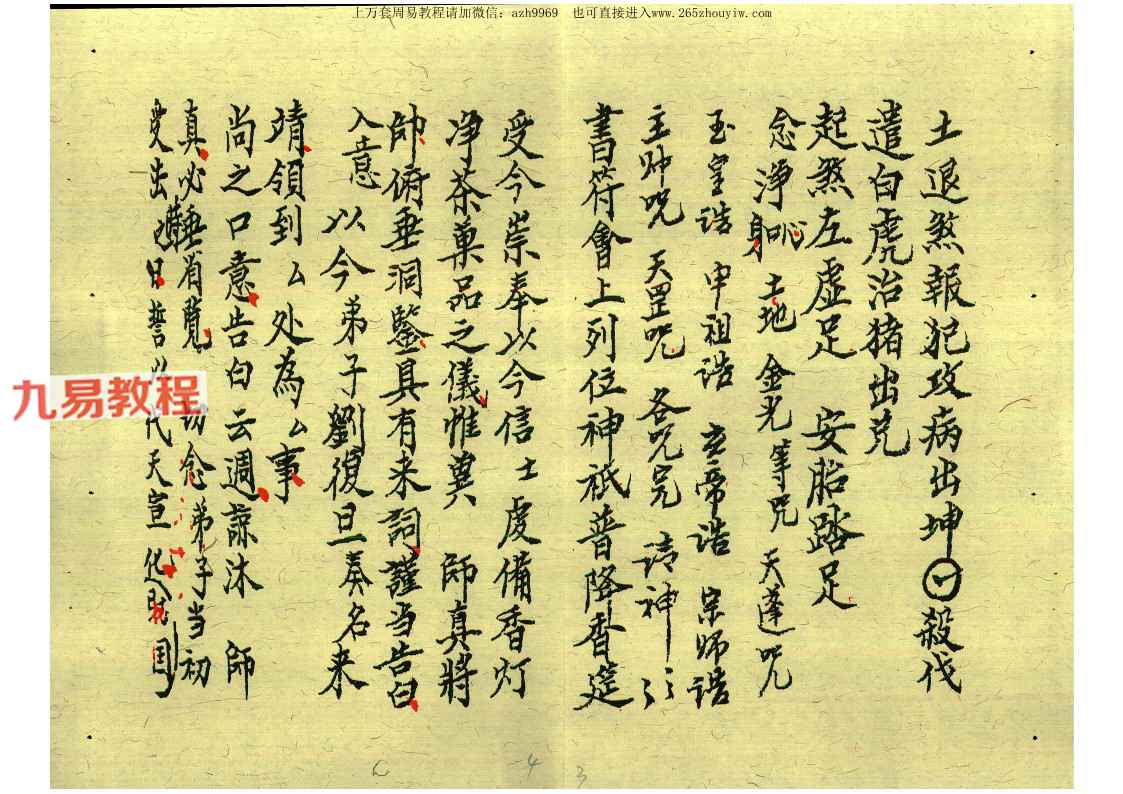 上万套周易教程请加微信：azh9969 也可直接进入www.265zhouyiw.com
土退煞報犯攻病出坤 殺伐
遣白虎治猪出兑
起煞左虚足 安胎踏足
念净身 土地 金光等咒 天蓬咒
玉皇诰 申祖诰 玄帝诰 宗师诰
主帅咒 天罡咒 各咒完 请神
書符會上列位神祇普降香筵
受今崇奉以今信士虔備香灯
净茶菓品之儀惟冀 師真將
帥俯垂洞鑒具有来詞謹当告白
入意 以今弟子劉復旦奏名来
靖領到厶处為厶事
尚之口意告白云週諒沐 師
真必垂省覧 切念弟子当初
受出 日誓以代天宣化 国
九易教程
4 3